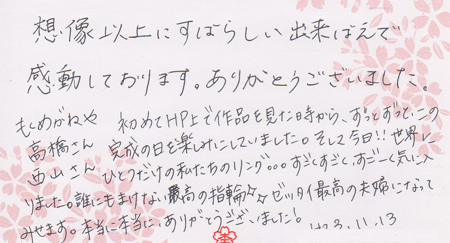 想像以上にすばらしい出来ばえで
感動しております。ありがとうございました。
もくめがねや
高橋さん
西山さん
初めてHP上で作品を見た時から、ずっとずっと、この
完成の日を楽しみにしていました。そして今日!!世界に
ひとつだけの私たちのリング。。。すごくすごく、すごーく気に入
りました。誰にもまけない最高の指輪☆☆ゼッタイ最高の夫婦になって
みせます。本当に本当に、ありがとうございました!
H23.11.13